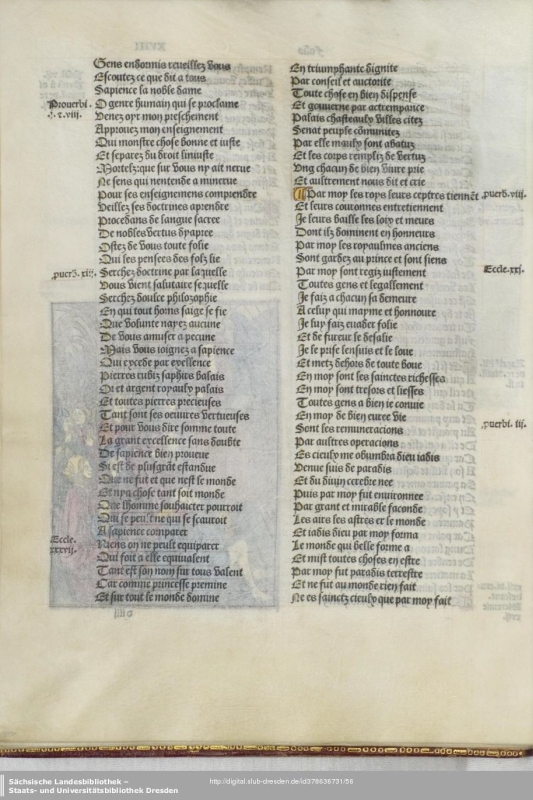 Gens endormis reueillez vous
Escoutez ce que dit a tous
Sapience la noble dame
O gence humain qui se proclame
Venez oyr mon preschement
Approuuez mon enseignement
Qui monstre chose bonne et iuste
Et separez du droit liniuste
Mortelz: que sur vous ny ait nerue
Ne sens qui nentende a minerue
Pour ses enseignemens comprendre
Veillez ses doctrines aprendre
Procedans de langue sacree
De nobles vertus dyapree
Ostez de vous toute folie
Qui les pensees des folz lie
Serchez doctrine par laquelle
Vous vient salutaire sequelle
Serchez doulce philosophie
En qui tout homs saige se fie
Que volunte nayez aucune
De vous amuser a pecune
Mais vous ioignez a sapience
Qui excede par excellence
Pierres rubiz saphirs balais
Or et argent royaulx palais
Et toutes pierres precieuses
Tant sont ses oeuures vertueuses
Et pour vous dire somme toute
La grant excellence sans doubte
De sapience bien prouuee
Si est de plusgrãt estandue
Que ne fut et que nest le monde
Et nya chose tant soit monde
Que lhomme souhaicter pourroit
Qui se peust ne qui se scauroit
A sapience comparer
Riens on ne peult equiparer
Qui soit a elle equiualent
Tant est son nom sur tous valent
Car comme princesse premine
Et sur tout le monde domine
Prouerbi.
i. z. viii.
puerb. xiii.
Eccle.
xxxvij.
En triumphante dignite
Par conseil et auctorite
Toute chose en bien dispense
Et gouuerne par actrempance
Palais chasteaulx villes citez
Senat peuple cõmunitez
Par elle maulx sont abatuz
Et les corps remplez de vertuz
Vng chacun de bien viure prie
Et aultrement nous dit et crie
Par moy les roys leurs ceptres tiennẽt
Et leurs couronnes entretiennent
Je leurs baille les loix et meurs
Dont ilz dominent en honneurs
Par moy les royaulmes anciens
Sont gardez au prince et sont siens
Par moy sont regiz iustement
Toutes gens et legallement
Je faiz a chacun sa demeure
A celuy qui mayme et honnoure
Je luy faiz euader folie
Et de fureur le deslie
Je le prise lensuis et le loue
Et metz dehors de toute boue
En moy sont les sainctes richesses
En moy sont tresors et liesses
Toutes gens a bien ie conuie
En moy de bien euree vie
Sont les remuneracions
Par aultres operacions
Es cieulx me obumbra dieu iadis
Venue suis de paradis
Et du diuin cerebre nee
Puis par moy fut enuironnee
Par grant et mirable faconde
Les airs les astres et le monde
Et iadis dieu par moy forma
Le monde qui belle forme a
Et mist toutes choses en estre
Par moy fut paradis terrestre
Et ne fut au monde rien fait
Ne es sainctz cieulx que par moy fait
puerb. viii.
Eccle. xxi.
puerbi. iii.
Sächsische Landesbibliothek –
Staats- und Universitätsbibliothek Dresden
http://digital.slub-dresden.de/id378636731/56